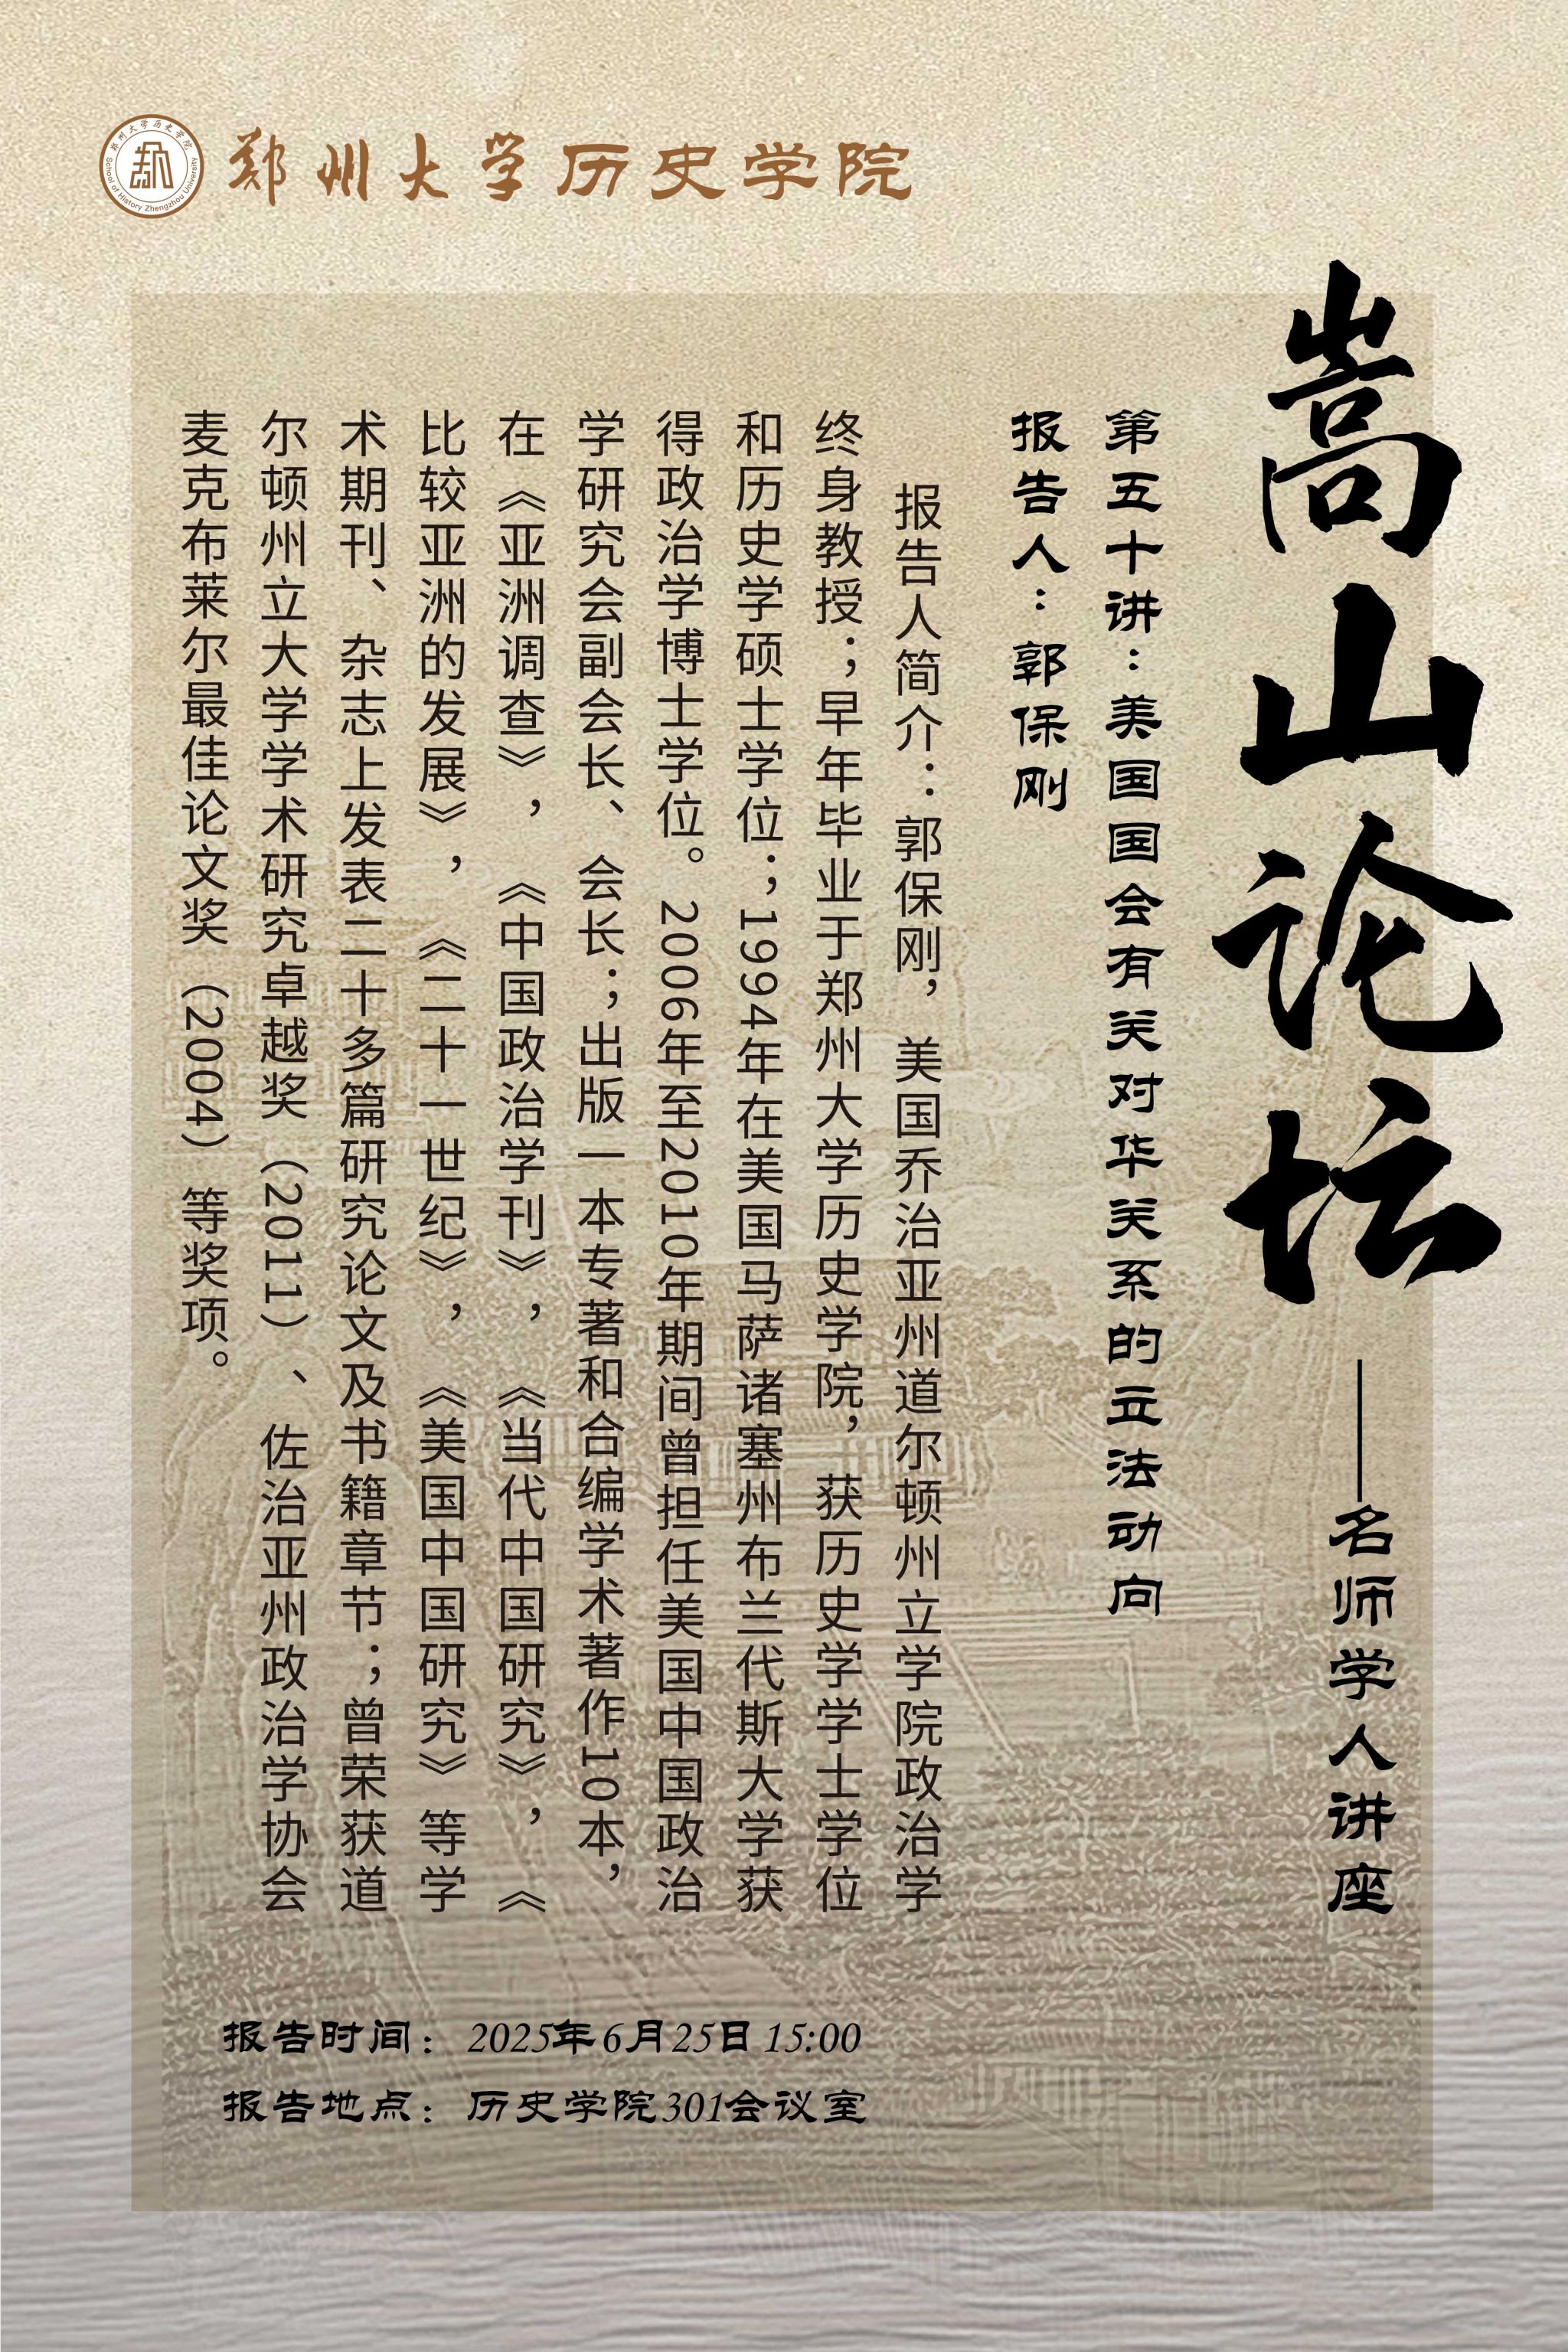 郑州大学历史学院
School of History Zhengzhou University
郑州大学历史学院
嵩山论坛
——名师学人讲座
第五十讲：美国国会有关对华关系的立法动向
报告人：郭保刚
报告人简介：郭保刚，美国乔治亚州道尔顿州立学院政治学
终身教授；早年毕业于郑州大学历史学院，获历史学学士学位
和历史学硕士学位；1994年在美国马萨诸塞州布兰代斯大学获
得政治学博士学位。2006年至2010年期间曾担任美国中国政治
学研究会副会长、会长；出版一本专著和合编学术著作10本，
在《亚洲调查》，《中国政治学刊》，《当代中国研究》，《
比较亚洲的发展》，《二十一世纪》，《美国中国研究》等学
术期刊、杂志上发表二十多篇研究论文及书籍章节；曾荣获道
尔顿州立大学学术研究卓越奖（2011）、佐治亚州政治学协会
麦克布莱尔最佳论文奖（2004）等奖项。
报告时间：2025年6月25日 15:00
报告地点：历史学院301会议室